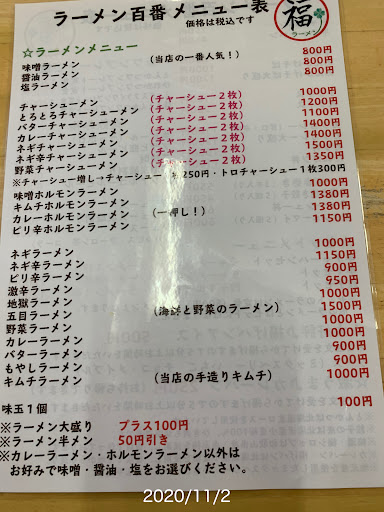 ラーメン百番 メニュー表
価格は税込です
福
ラーメン
☆ラーメンメニュー
味噌ラーメン (当店の一番人気！) 800円
醤油ラーメン 800円
塩ラーメン 800円
チャーシューメン (チャーシュー２枚) 1000円
とろとろチャーシューメン (チャーシュー２枚) 1200円
バターチャーシューメン (チャーシュー２枚) 1100円
カレーチャーシューメン (チャーシュー２枚) 1400円
ネギチャーシューメン (チャーシュー２枚) 1400円
ネギ辛チャーシューメン (チャーシュー２枚) 1500円
野菜チャーシューメン (チャーシュー２枚) 1350円
※チャーシュー増し→チャーシュー 250円・トロチャーシュー１枚300円
味噌ホルモンラーメン 1000円
キムチホルモンラーメン 1380円
カレーホルモンラーメン (一押し！) 1380円
ピリ辛ホルモンラーメン 1150円
ネギラーメン 1000円
ネギ辛ラーメン 1150円
ピリ辛ラーメン 900円
激辛ラーメン 950円
地獄ラーメン 1000円
五目ラーメン (海鮮と野菜のラーメン) 1500円
野菜ラーメン 1000円
カレーラーメン 1000円
バターラーメン 900円
もやしラーメン 900円
キムチラーメン (当店の手造りキムチ) 1000円
味玉１個 100円
※ラーメン大盛り プラス100円
※ラーメン半メン 50円引き
※カレーラーメン・ホルモンラーメン以外は
お好みで味噌・醤油・塩をお選びください。
2020/11/2